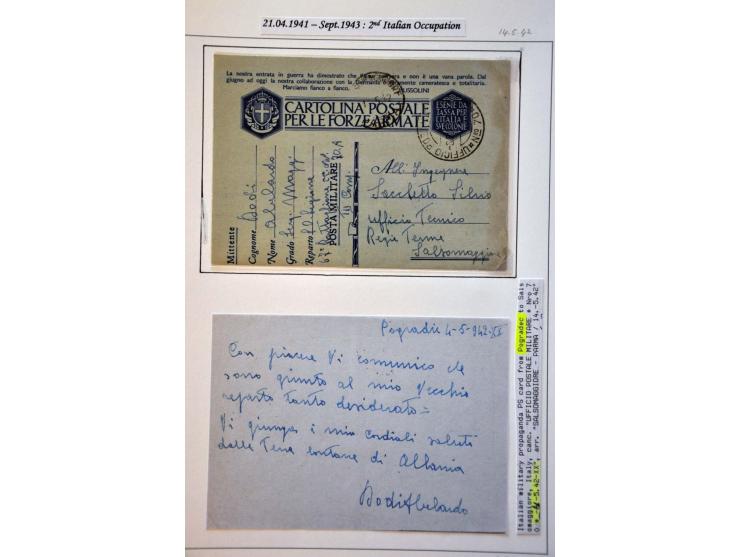 21.04.1941 – Sept.1943 : 2nd Italian Occupation
14.5.42
La nostra entrata in guerra ha dimostrato che l'Asse non era e non è una vana parola. Dal
giugno ad oggi la nostra collaborazione con la Germania è veramente cameratesca e totalitaria.
Marciamo fianco a fianco. MUSSOLINI
CARTOLINA POSTALE
PER LE FORZE ARMATE
ESENTE DA
TASSA PER
L'ITALIA E
SVE COLONIE
Mittente
Cognome Dodi
Nome Abelardo
Grado Serg. Magg.
Reparto
POSTA MILITARE 70.A
All' Ingegnere
Sacchetto Silvio
Ufficio Tecnico
Regie Terme
Salsomaggiore
Pogradic 4-5-942-XX
Con piacere Vi comunico che
sono giunto al mio vecchio
reparto tanto desiderato =
Vi giunga i mio cordiali saluti
dalle Terre lontane di Albania
Dodi Abelardo
Italian military propaganda PS card from Pogradec to Sals
omaggiore, Italy, canc. "UFFICIO POSTALE MILITARE * Nro 7
0 * -5.42-XX", arr. "SALSOMAGGIORE - PARMA / 14.-5.42"